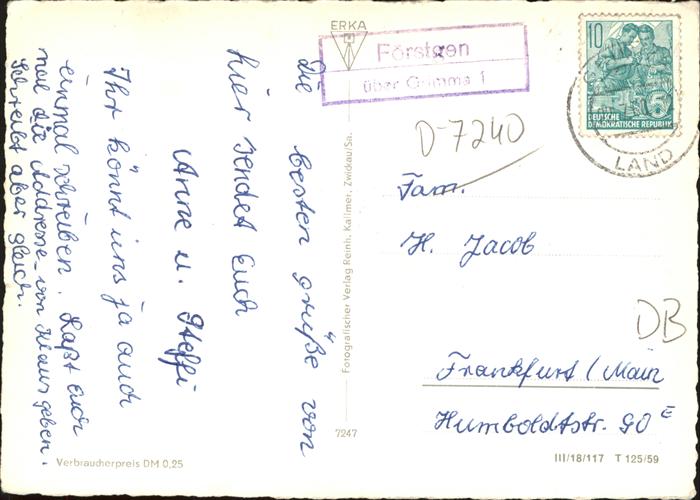 Die besten Grüße von
hier sendet Euch
Anne u. Steffi
Ihr könnt uns ja auch
einmal schreiben. Laßt Euch
mal die Addresse von Klaus geben.
Schreibt aber gleich.
Verbraucherpreis DM 0,25
ERKA
Fotografischer Verlag Reinh. Kallmer, Zwickau/Sa.
7247
Förstgen
über Grimma 1
10
DEUTSCHE
DEMOKRATISCHE REPUBLIK
5
LAND
D-7240
Fam.
H. Jacob
DB
Frankfurt / Main
Humboldtstr. 90 E
III/18/117 T 125/59